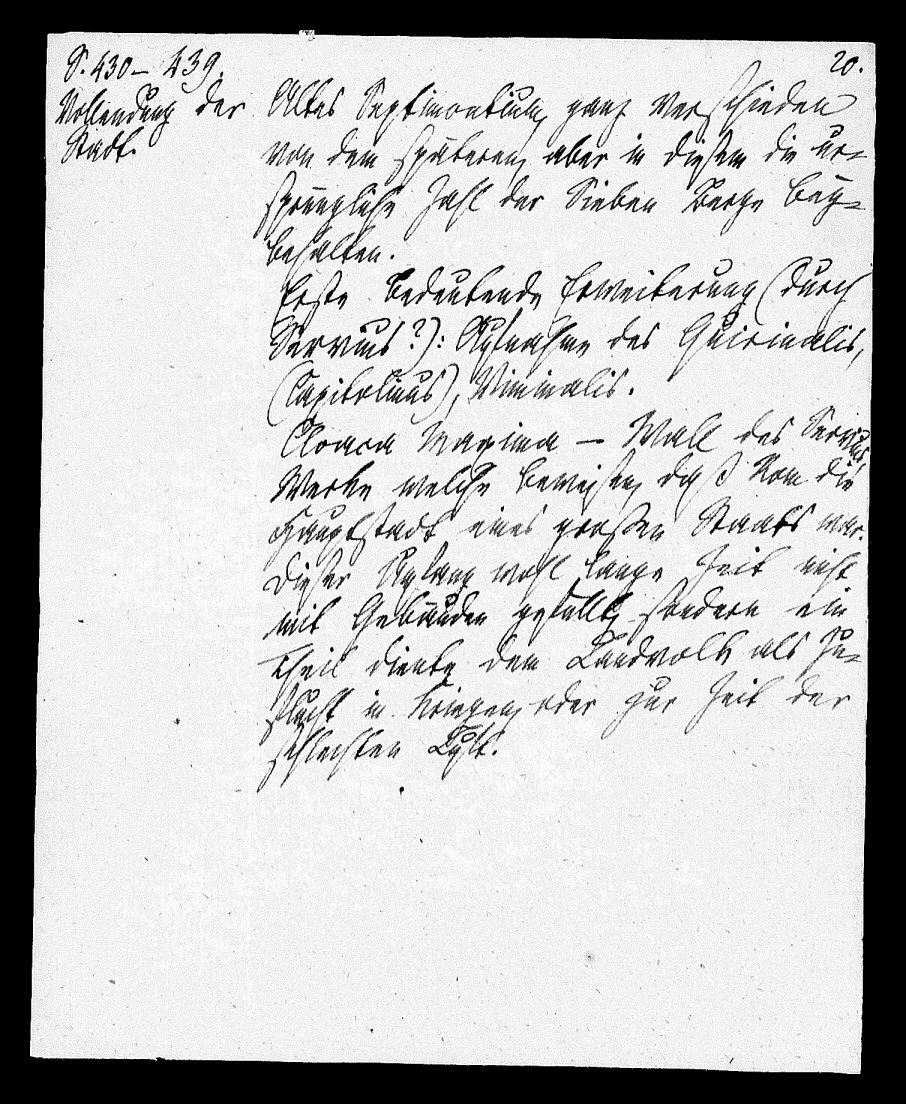 S. 430 – 439.
20.
Vollendung der
Stadt.
Altes Septimontium, ganz verschieden
von dem späteren, aber in diesem die ur-
sprüngliche Zahl der Sieben Berge bey-
behalten.
Erste bedeutende Erweiterung (durch
Servius?): Aufnahme des Quirinalis,
(Capitolinus), Viminalis.
Cloaca Maxima – Wall des Servius
Werke welche beweisen, daß Rom die
Hauptstadt eines großen Staats war.
Dieser Umfang wohl lange Zeit nicht
mit Gebäuden gefüllt, sondern ein
Theil diente dem Landvolk als Zu-
flucht in Kriegen, oder zur Zeit der
schlechten Luft.